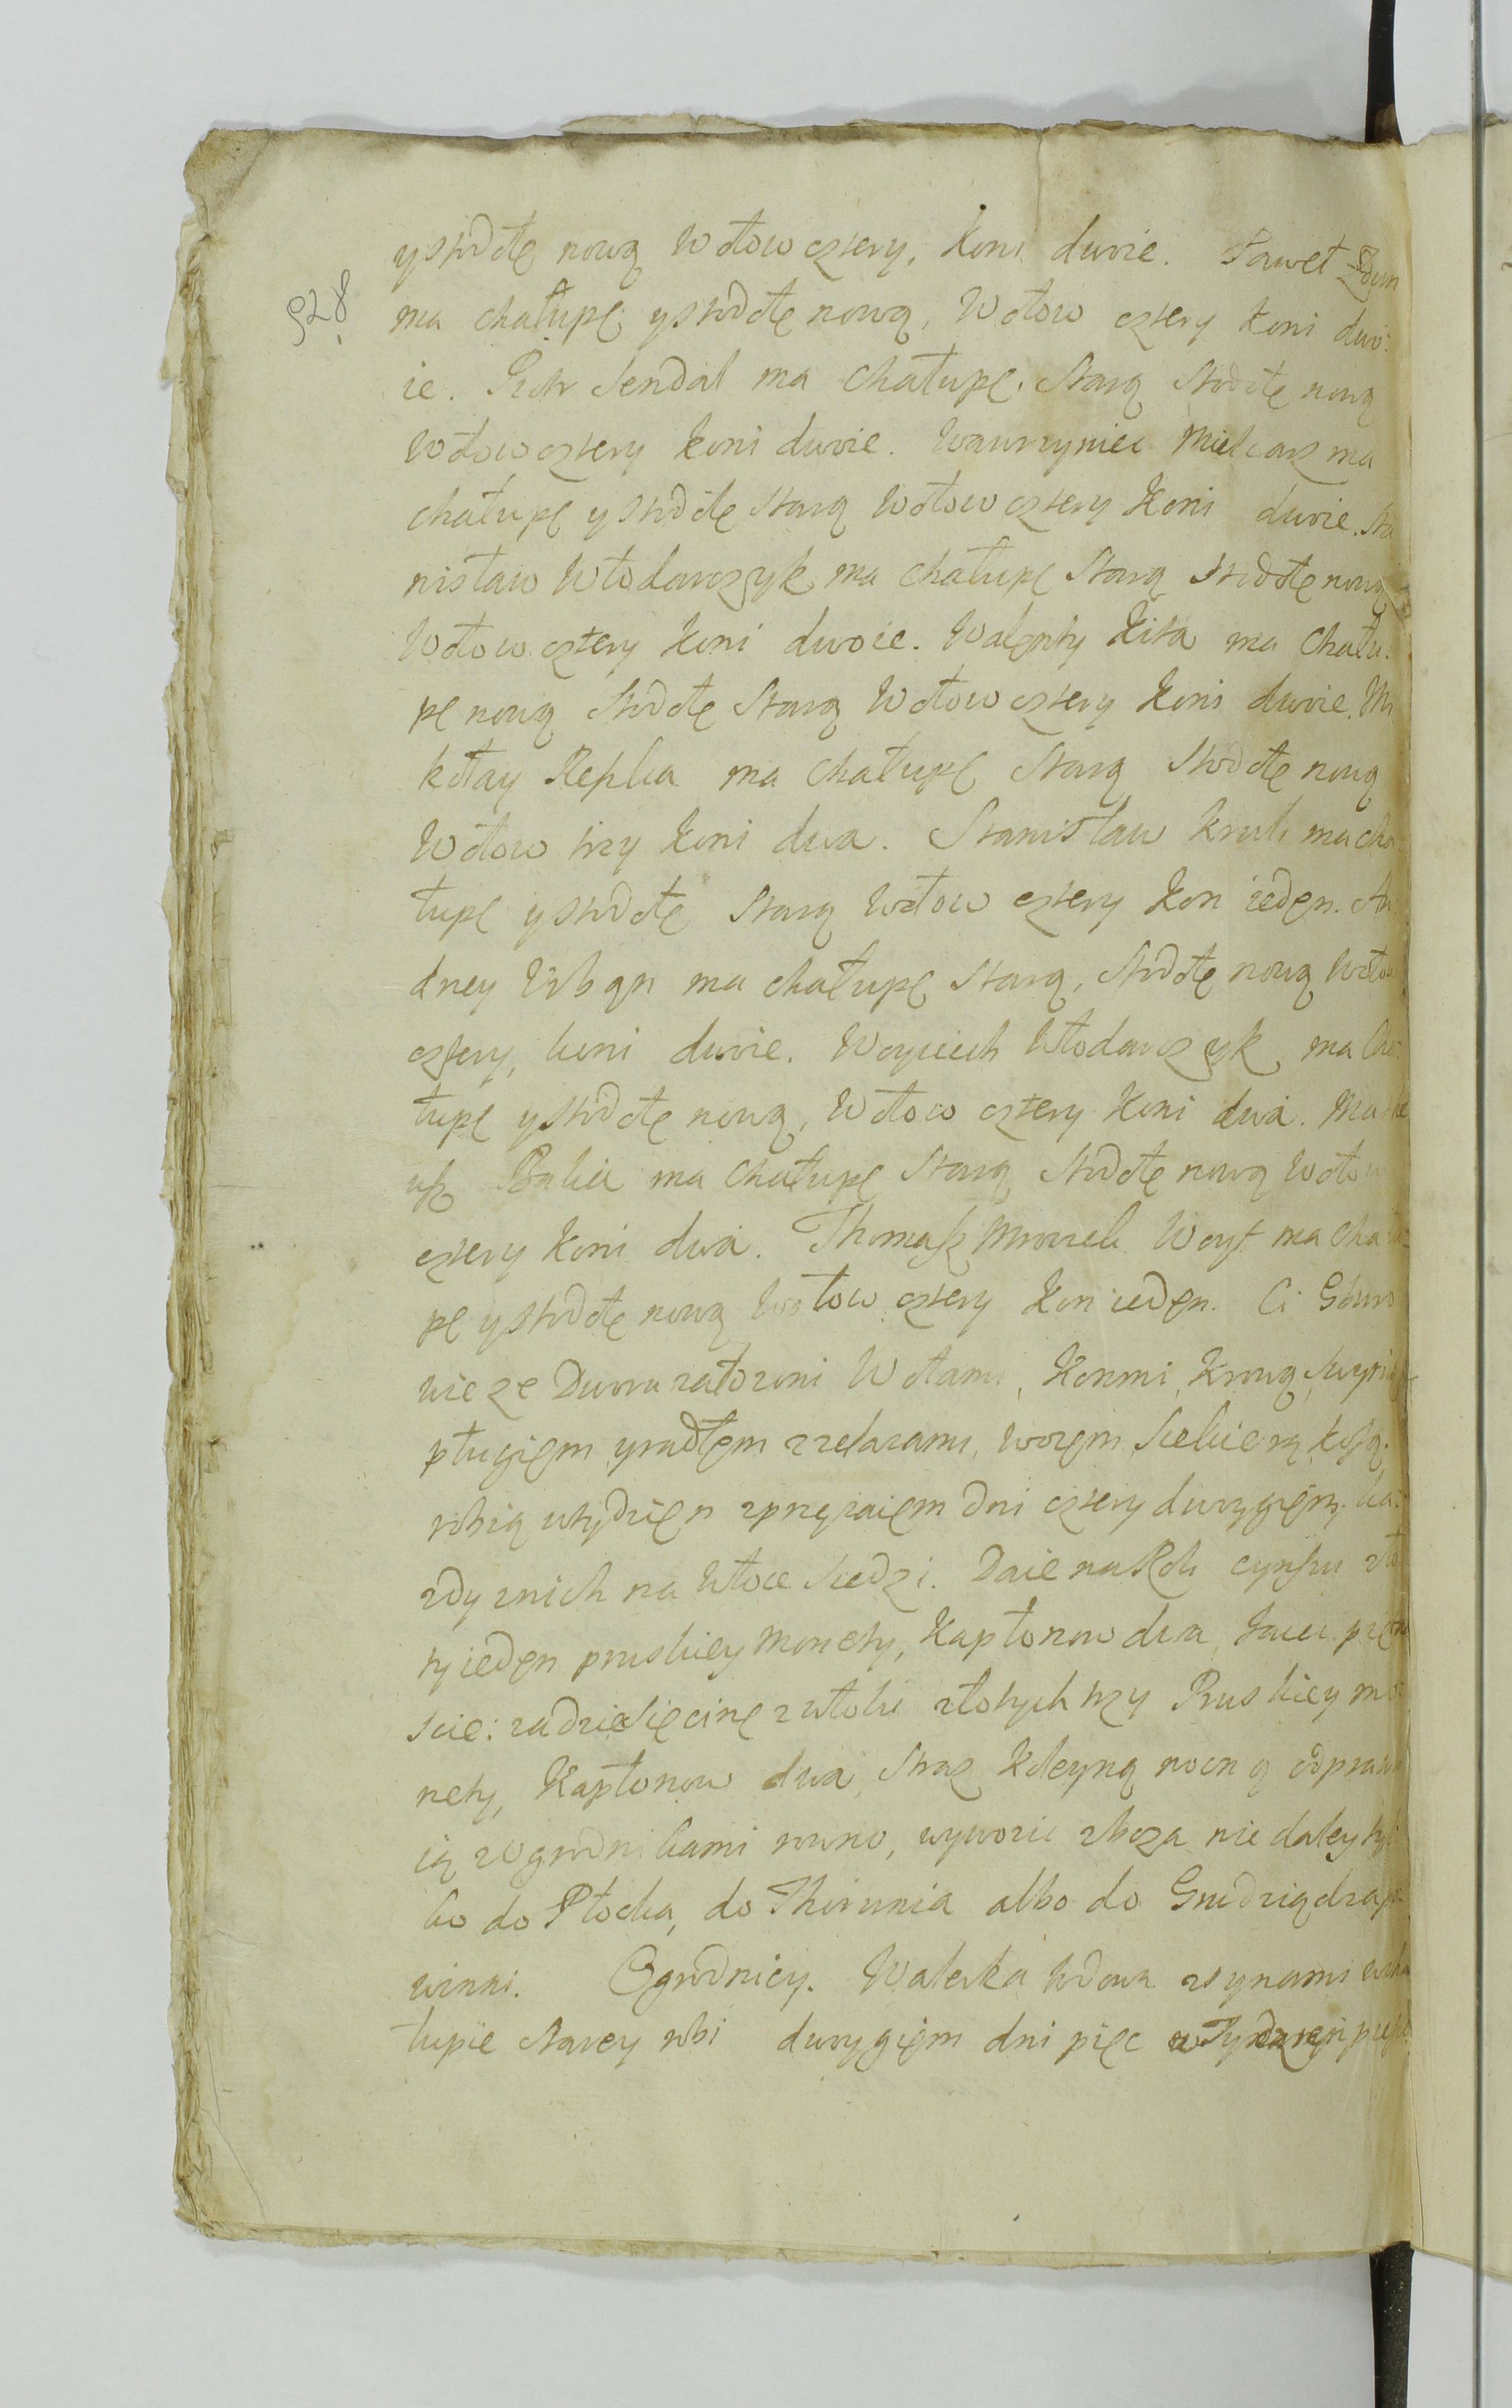 928
y stodołę nową Wołow cztery, koni dwoie. Paweł Zdun
ma chałupę y stodołę nową, Wołow cztery koni dwo:
ie. Piotr Sendal ma chałupę starą stodołę nową
Wołow cztery koni dwoie. Wawrzyniec Mielcarz ma
chałupę y stodołę starą Wołow cztery koni dwoie. Sta
nisław Włodarczyk ma chałupę starą stodołę nową
Wołow cztery koni dwoie. Walenty Kita ma chału:
pę nową stodołę starą Wołow cztery koni dwoie. Mi
kołay Repka ma chałupę starą stodołę nową
Wołow trzy koni dwa. Stanisław Krul ma cha
łupę y stodołę starą Wołow cztery kon ieden. An
drzey Urban ma chałupę starą, stodołę nową Woło
cztery, koni dwoie. Woyciech Włodarczyk ma cha:
łupę y stodołę nową, Wołow cztery koni dwa. Mate
usz ma chałupę starą stodołę nową Wołow
cztery koni dwa. Thomasz Mrozek Woyt ma cha
pę y stodołę nową Wołow cztery kon ieden. Ci Gburo
wie ze Dworu założoni Wołami, Konmi, Krową, Swynią
pługiem y radłem z zelazami, wozem siekierą, kosą.
robią w tydzien z prężaiem dni cztery dwoygiem. ka:
zdy z nich na Włoce siedzi. Daie na Rok cynszu zło
ty ieden pruskiey monety, kapłonow dwa, Iaiec piętna
scie: za dziesięcinę z włoki złotych trzy Pruskiey mo
nety, Kapłonow dwa, straz koleyną nocną odprawu
ią z Ogrodnikami rowno, wywozic zboza nie daley tyl
ko do Płocka, do Thorunia albo do Grudziądza po
winni. Ogrodnicy. Walerka wdowa z synami w cha
łupie starey robi dwoygiem dni pięc w Tydzien pieszo